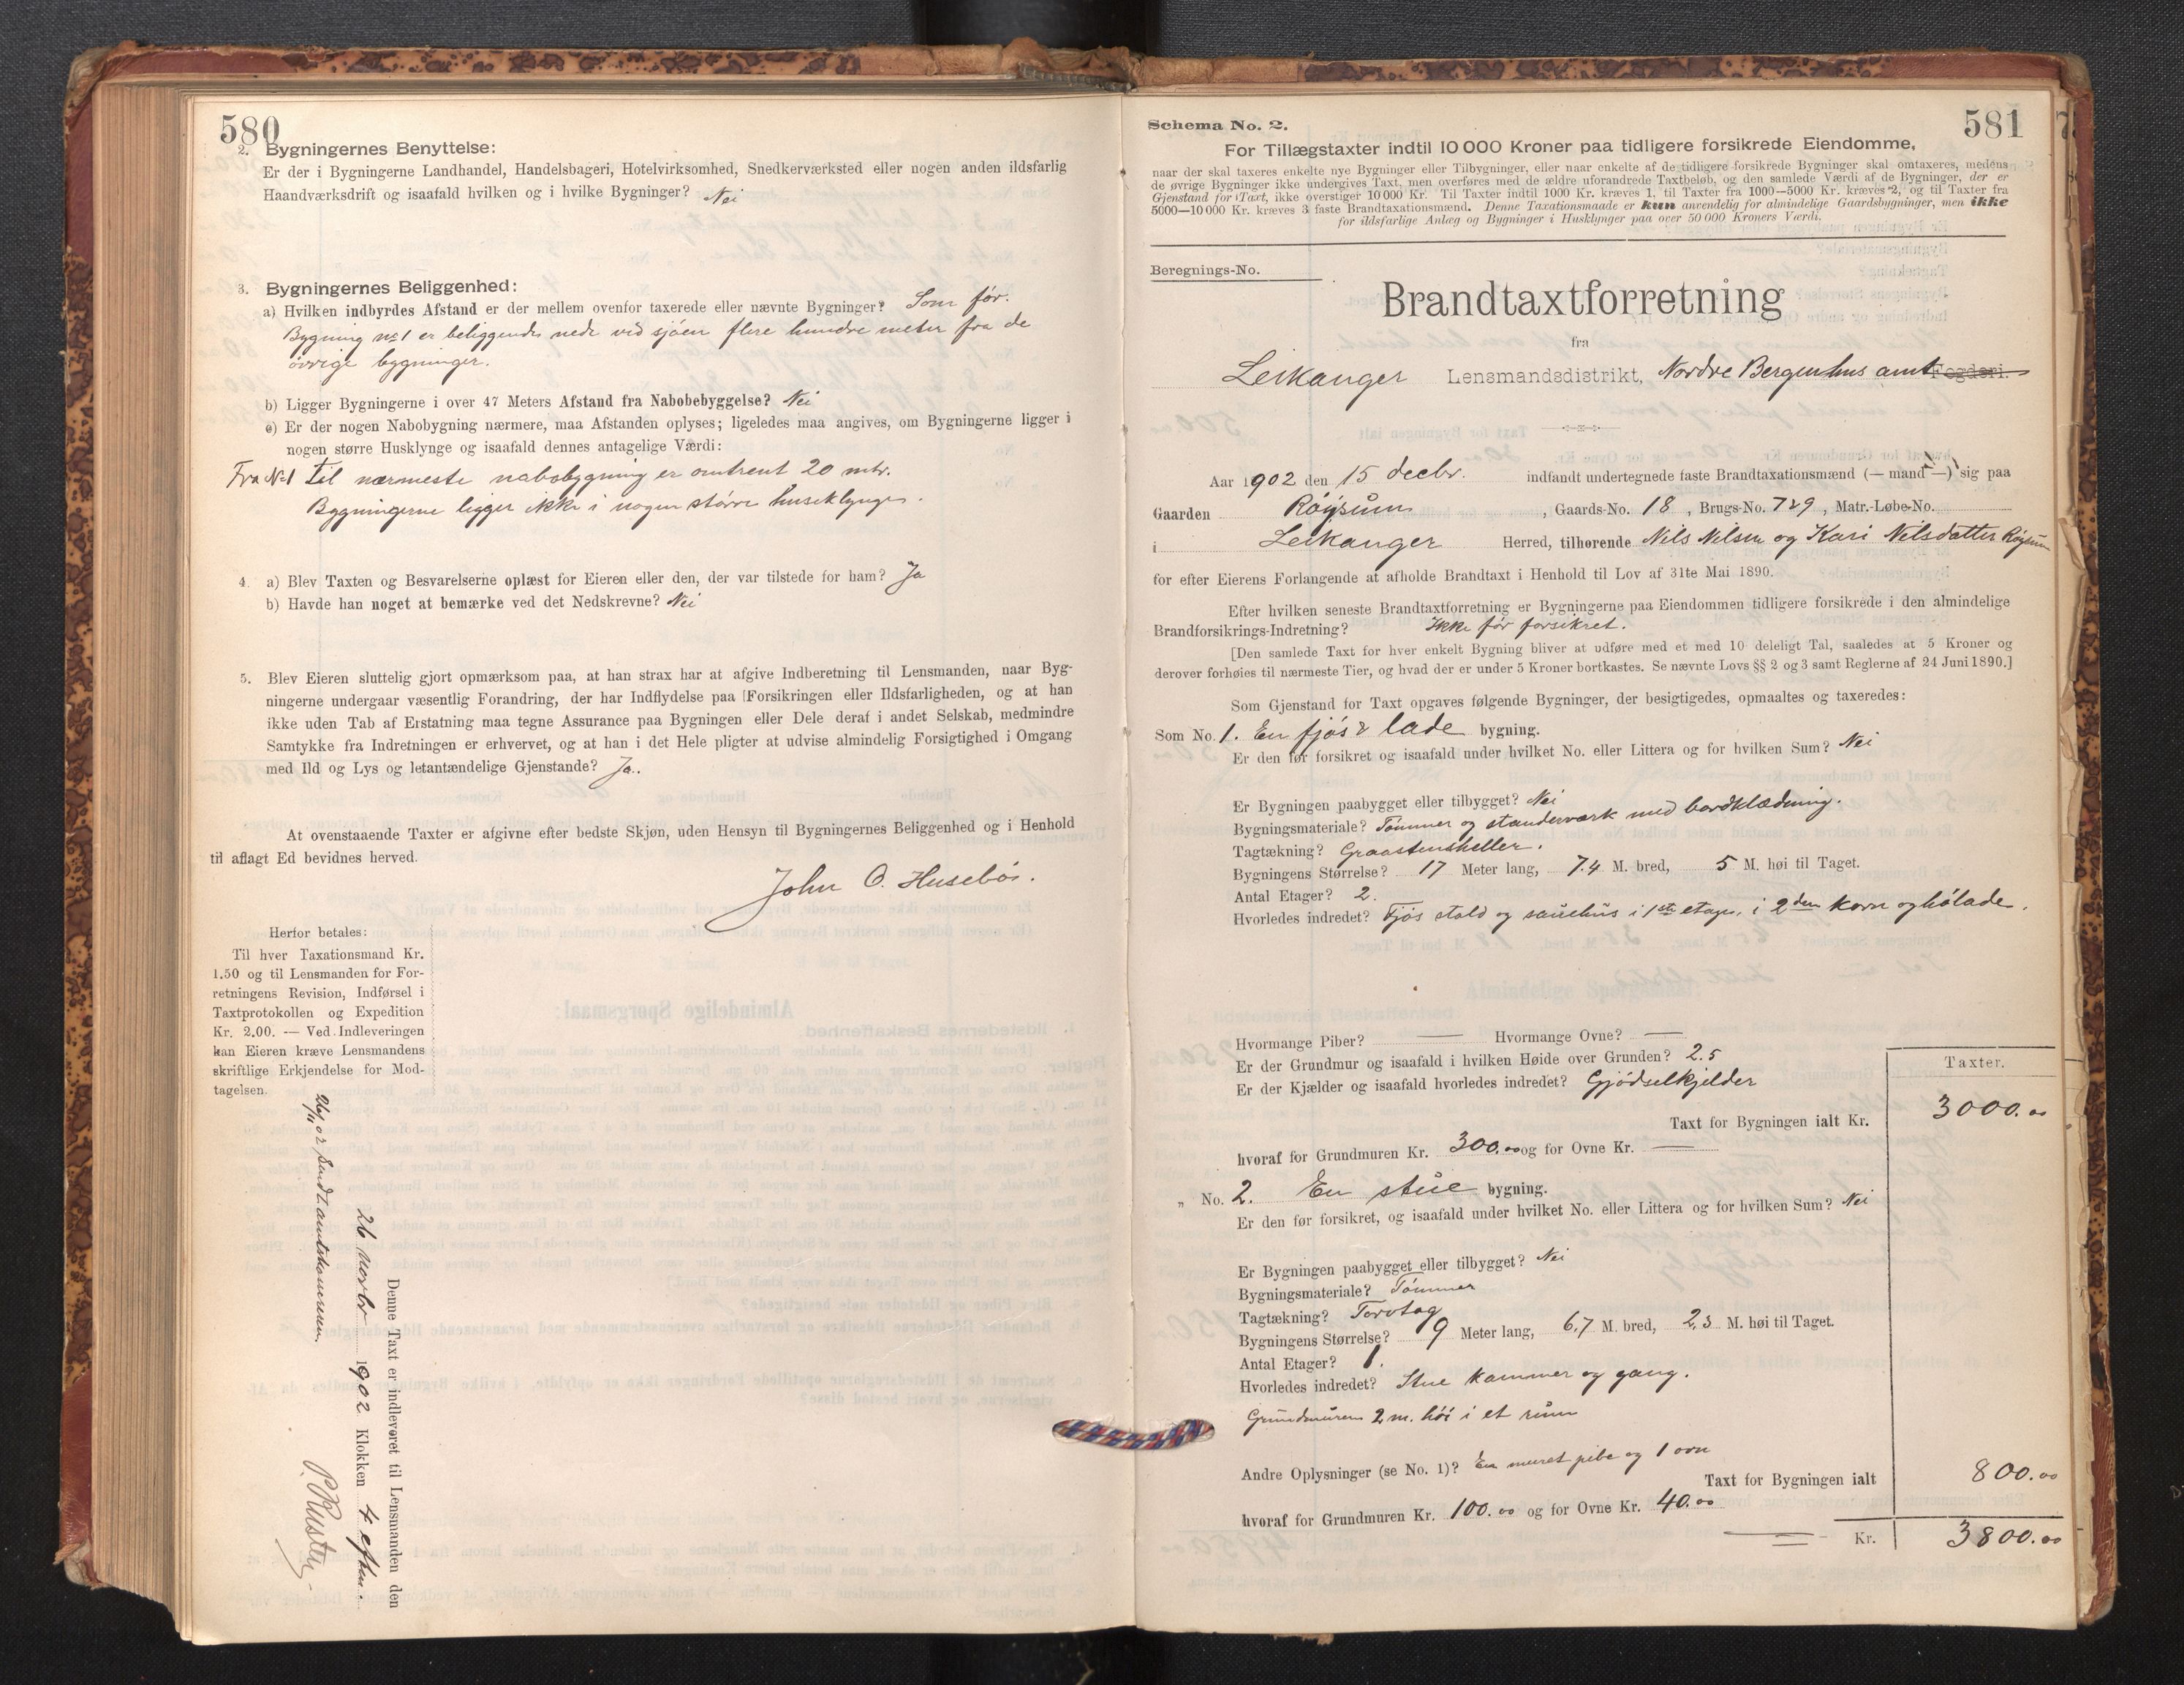 580
2. Bygningernes Benyttelse:
Er der i Bygningerne Landhandel, Handelsbageri, Hotelvirksomhed, Snedkerværksted eller nogen anden ildsfarlig
Haandværksdrift og isaafald hvilken og i hvilke Bygninger? Nei
3. Bygningernes Beliggenhed:
a) Hvilken indbyrdes Afstand er der mellem ovenfor taxerede eller nævnte Bygninger? Som før.
Bygning No 1 er beliggende nede ved sjøen flere hundre meter fra de
øvrige bygninger.
b) Ligger Bygningerne i over 47 Meters Afstand fra Nabobebyggelse? Nei
c) Er der nogen Nabobygning nærmere, maa Afstanden oplyses; ligeledes maa angives, om Bygningerne ligger i
nogen større Husklynge og isaafald dennes antagelige Værdi:
Fra No 1 til nærmeste nabobygning er omtrent 20 mtr.
Bygningerne ligger ikke i nogen større huseklynge.
4. a) Blev Taxten og Besvarelserne oplæst for Eieren eller den, der var tilstede for ham? Ja
b) Havde han noget at bemærke ved det Nedskrevne? Nei
5. Blev Eieren sluttelig gjort opmærksom paa, at han strax har at afgive Indberetning til Lensmanden, naar Byg-
ningerne undergaar væsentlig Forandring, der har Indflydelse paa Forsikringen eller Ildsfarligheden, og at han
ikke uden Tab af Erstatning maa tegne Assurance paa Bygningen eller Dele deraf i andet Selskab, medmindre
Samtykke fra Indretningen er erhvervet, og at han i det Hele pligter at udvise almindelig Forsigtighed i Omgang
med Ild og Lys og letantændelige Gjenstande? Ja.
At ovenstaaende Taxter er afgivne efter bedste Skjøn, uden Hensyn til Bygningernes Beliggenhed og i Henhold
til aflagt Ed bevidnes herved.
John O. Husebø.
Herfor betales:
Til hver Taxationsmand Kr.
1.50 og til Lensmanden for For-
retningens Revision, Indførsel i
Taxtprotokollen og Expedition
Kr. 2.00. — Ved Indleveringen
kan Eieren kræve Lensmandens
skriftlige Erkjendelse for Mod-
tagelsen.
Denne Taxt er indleveret til Lensmanden den
26 novbr 1902 Klokken 4 efter.
26/11 02 Sendt amtskontoret
581
Schema No. 2.
For Tillægstaxter indtil 10 000 Kroner paa tidligere forsikrede Eiendomme,
naar der skal taxeres enkelte nye Bygninger eller Tilbygninger, eller naar enkelte af de tidligere forsikrede Bygninger skal omtaxeres, medens
de øvrige Bygninger ikke undergives Taxt, men overføres med de ældre uforandrede Taxtbeløb, og den samlede Værdi af de Bygninger, der er
Gjenstand for Taxt, ikke overstiger 10 000 Kr. Til Taxter indtil 1000 Kr. kræves 1, til Taxter fra 1000—5000 Kr. kræves 2, og til Taxter fra
5000—10 000 Kr. kræves 3 faste Brandtaxationsmænd. Denne Taxationsmaade er kun anvendelig for almindelige Gaardsbygninger, men ikke
for ildsfarlige Anlæg og Bygninger i Husklynger paa over 50 000 Kroners Værdi.
Beregnings-No.
Brandtaxtforretning
fra
Leikanger Lensmandsdistrikt, Nordre Bergenhus amt Fogderi.
Aar 1902 den 15 decbr. indfandt undertegnede faste Brandtaxationsmænd (— mand —) sig paa
Gaarden Röysum, Gaards-No. 18, Brugs-No. 7&9, Matr.-Løbe-No.
i Leikanger Herred, tilhørende Nils Nilsen og Kari Nilsdatter Röysum
for efter Eierens Forlangende at afholde Brandtaxt i Henhold til Lov af 31te Mai 1890.
Efter hvilken seneste Brandtaxtforretning er Bygningerne paa Eiendommen tidligere forsikrede i den almindelige
Brandforsikrings-Indretning? Ikke før forsikret.
[Den samlede Taxt for hver enkelt Bygning bliver at udføre med et med 10 deleligt Tal, saaledes at 5 Kroner og
derover forhøies til nærmeste Tier, og hvad der er under 5 Kroner bortkastes. Se nævnte Lovs §§ 2 og 3 samt Reglerne af 24 Juni 1890.]
Som Gjenstand for Taxt opgaves følgende Bygninger, der besigtigedes, opmaaltes og taxeredes:
Som No. 1. En fjøs & lade bygning.
Er den før forsikret og isaafald under hvilket No. eller Littera og for hvilken Sum? Nei
Er Bygningen paabygget eller tilbygget? Nei
Bygningsmateriale? Tømmer og standerværk med bordklædning.
Tagtækning? Graastensheller.
Bygningens Størrelse? 17 Meter lang, 7.4 M. bred, 5 M. høi til Taget.
Antal Etager? 2.
Hvorledes indredet? Fjøs stald og sauehus i 1ste etage, i 2den korn og hølade.
Hvormange Piber? — Hvormange Ovne? —
Er der Grundmur og isaafald i hvilken Høide over Grunden? 2.5
Er der Kjælder og isaafald hvorledes indredet? Gjødselkjelder
Taxter.
Taxt for Bygningen ialt Kr. 3000.00
hvoraf for Grundmuren Kr. 300.00 og for Ovne Kr. —
„ No. 2. En stue bygning.
Er den før forsikret, og isaafald under hvilket No. eller Littera og for hvilken Sum? Nei
Er Bygningen paabygget eller tilbygget? Nei
Bygningsmateriale? Tømmer
Tagtækning? Torvtag
Bygningens Størrelse? 9 Meter lang, 6.7 M. bred, 2.3 M. høi til Taget.
Antal Etager? 1.
Hvorledes indredet? Stue kammer og gang.
Grundmuren 2 m. høi i et rum
Andre Oplysninger (se No. 1)? En muret pibe og 1 ovn
Taxt for Bygningen ialt 800.00
hvoraf for Grundmuren Kr. 100.00 og for Ovne Kr. 40.00
Kr. 3800.00